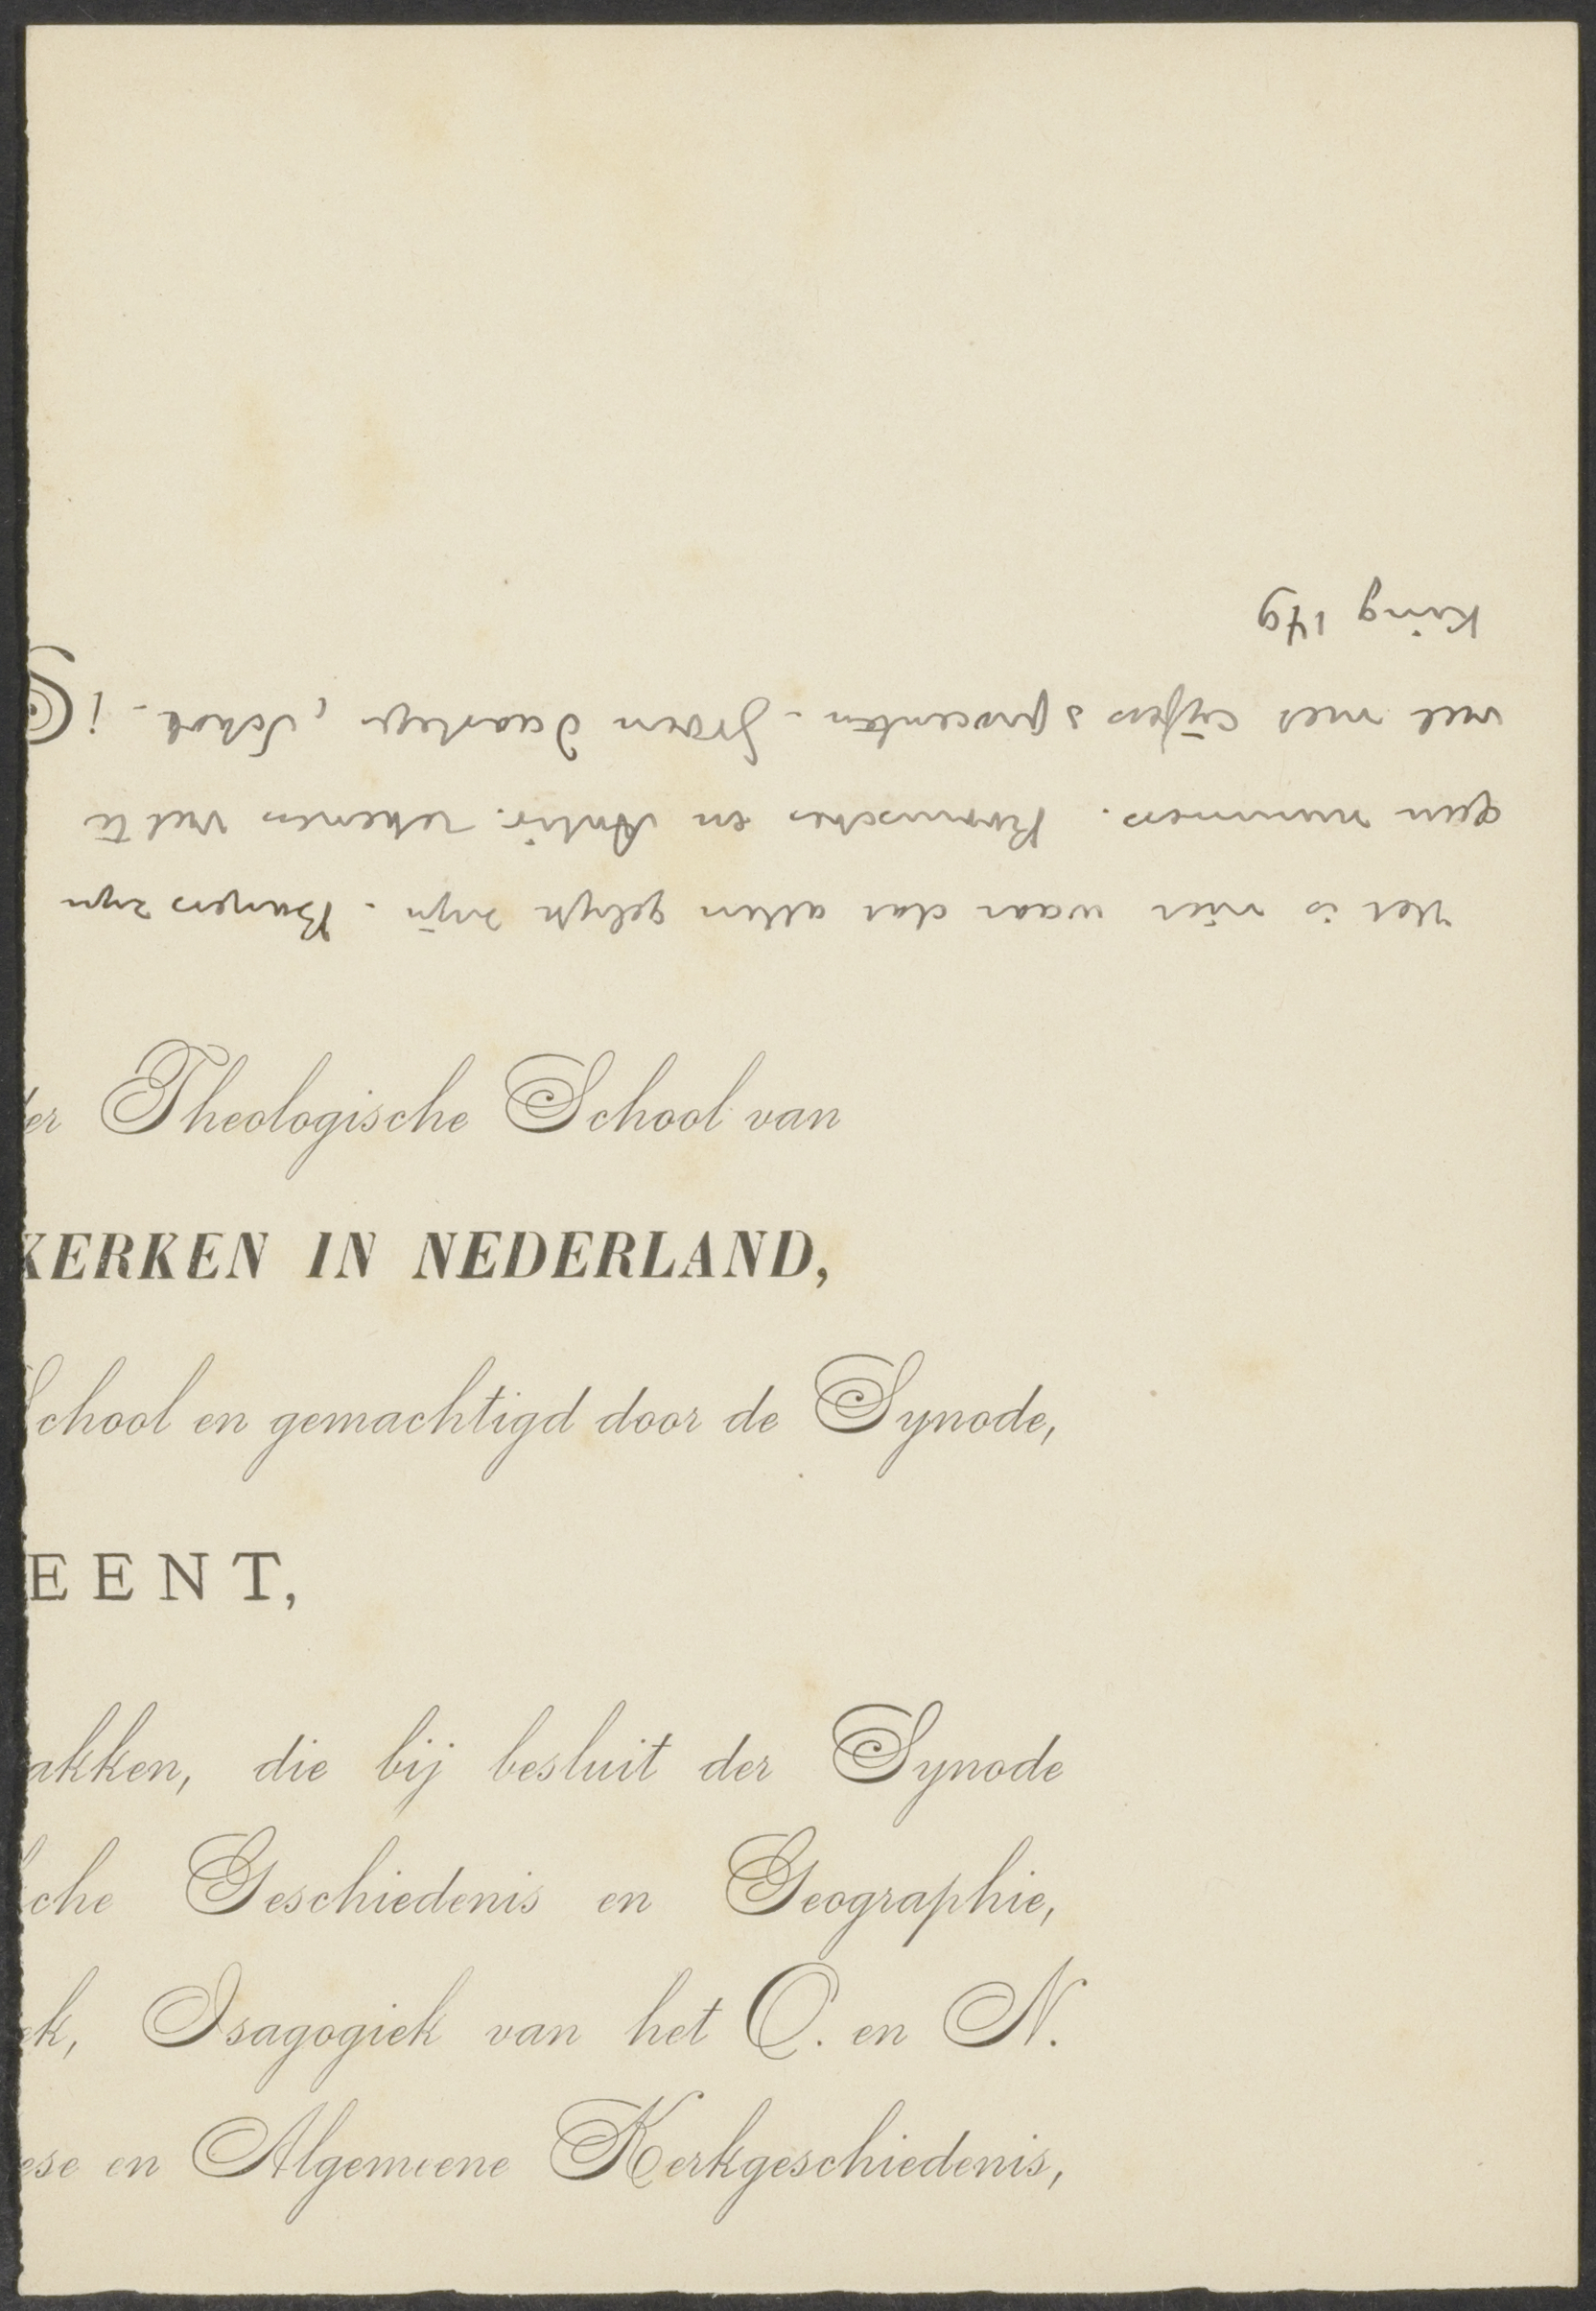 Het is niet waar dat allen gelijk zijn. Burgers zijn
geen nummers. Roomsches en Antir. rekenen veel te
veel met cijfers & procenten. Groen daartegen, Schol. -!
Kuing 179
er Theologische School van
KERKEN IN NEDERLAND,
School en gemachtigd door de Synode,
EENT,
akken, die bij besluit der Synode
che Geschiedenis en Geographie,
ek, Isagogiek van het O. en N.
ese en Algemeene Kerkgeschiedenis,